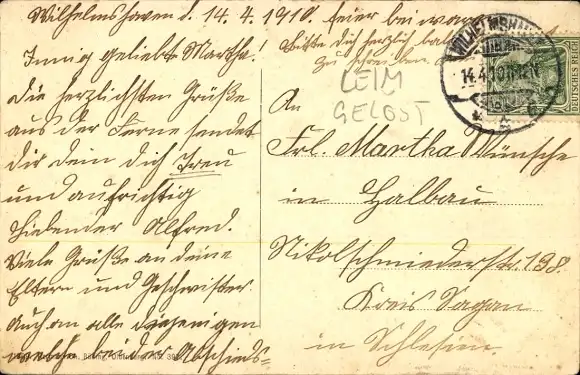 Wilhelmshaven d. 14.4.1910. feier bei war
Innig geliebte Martha!
Die herzlichsten Grüße
aus der Ferne sendet
dir dein dich Treu
und aufrichtig
liebender Alfred.
Viele Grüße an deine
Eltern und Geschwister
Auch an alle diejenigen
welche bei der Abschieds-
Bitte dich herzlich bald
zu schreiben.
WILHELMSHA
14.4.10
DEUTSCHES REICH
5
LEIM
GELÖST
An
Frl. Martha Wünsche
in Halbau
Nikolschmiederstr. 198.
Kreis Sagan
in Schlesien.